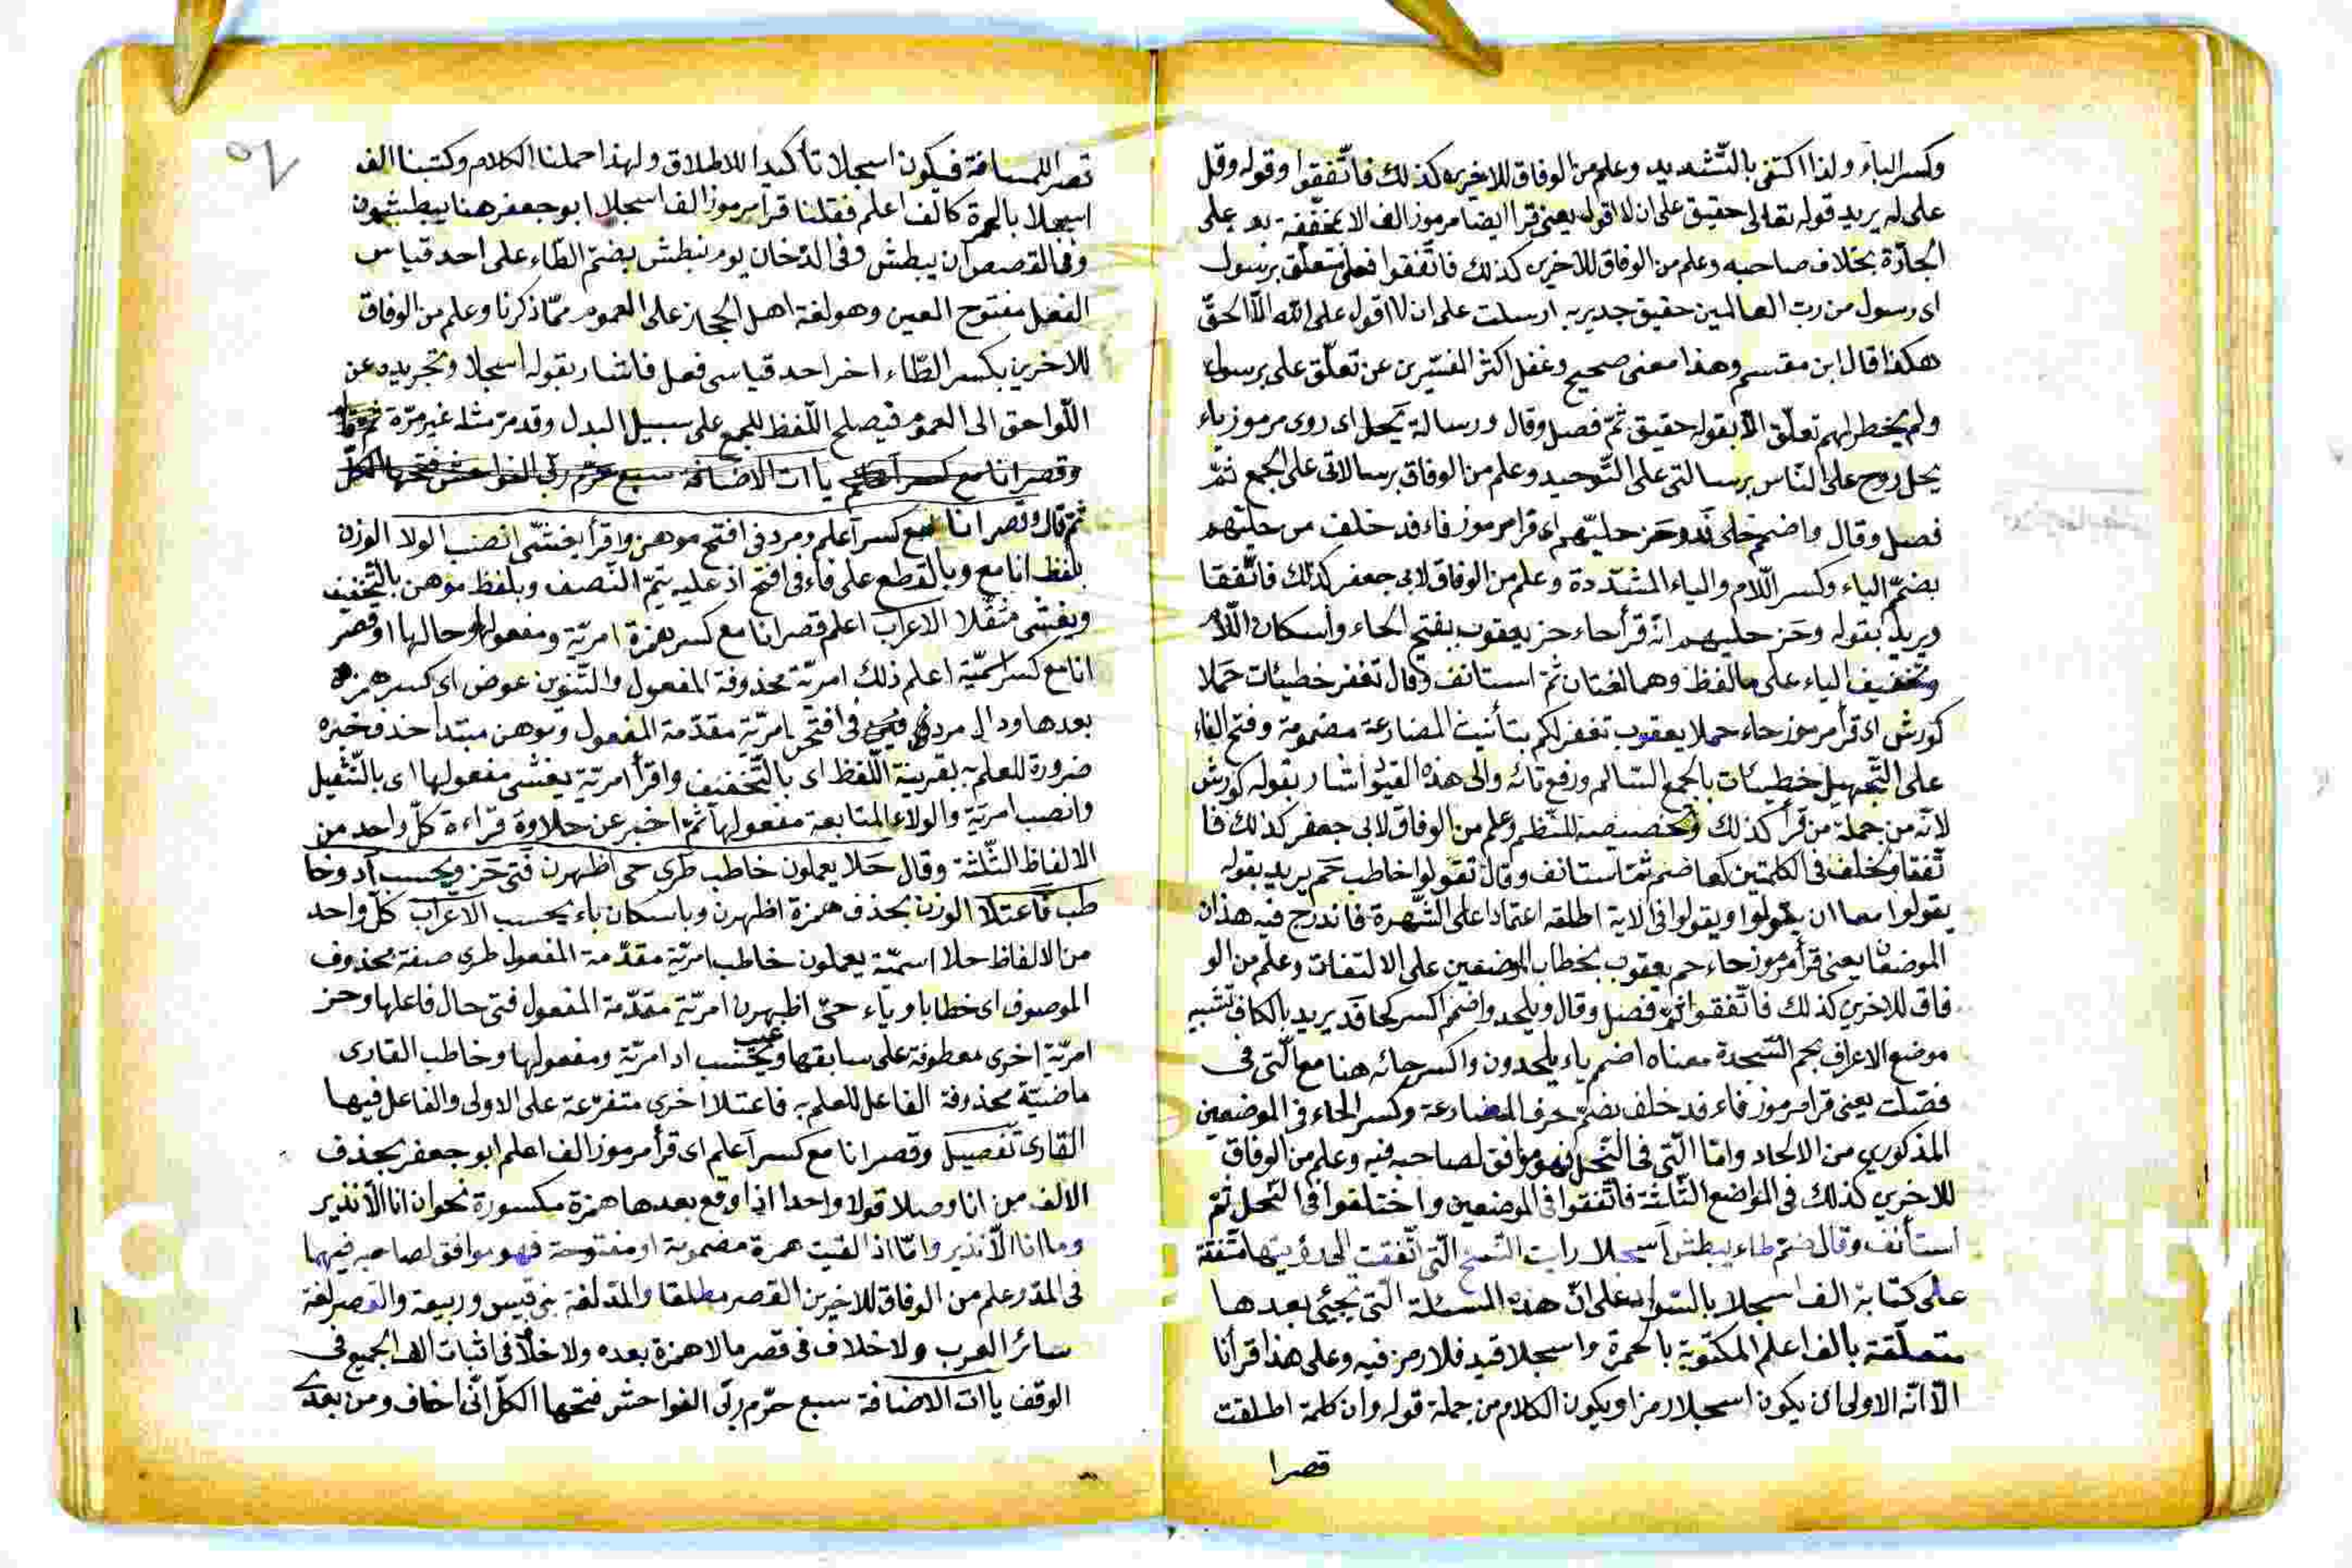 وكسر الياء ولذا اكتفى بالتشديد وعلم من الوفاق للاخرين كذلك فاتفقوا وقوله وقل
على له يريد قوله تعالى حقيق على ان لا اقول يعنى قرا ايضا مرموز الف الا بمخففة يد على
الجارة بخلاف صاحبه وعلم من الوفاق للاخرين كذلك فاتفقوا فعلى متعلق برسول
اى رسول من رب العالمين حقيق جدير به ارسلت على ان لا اقول على الله الا الحق
هكذا قال ابن مقسم وهذا معنى صحيح وغفل اكثر المفسرين عن تعلق على برسول
ولم يخطر لهم تعلق الا بقوله حقيق ثم فصل وقال ورسالة يحل اى روى مرموز ياء
يحل روح على الناس برسالتى على التوحيد وعلم من الوفاق برسالاتى على الجمع ثم
فصل وقال واضمم حلى فد وحز حليهم اى قرا مرموز فاء فد خلف من حليهم
بضم الياء وكسر اللام والياء المشددة وعلم من الوفاق لابى جعفر كذلك فاتفقا
ويريد بقوله وحز حليهم انه قرأ حاء حز يعقوب بفتح الحاء واسكان اللام
وتخفيف الياء على ما لفظ وهما لغتان ثم استانف وقال تغفر خطيئات حملا
كورش اى قرأ مرموز حاء حملا يعقوب تغفر لكم بتأنيث المضارعة مضمومة وفتح الفاء
على التجهيل خطيئات بالجمع السالم ورفع تائه والى هذه القيود اشار بقوله كورش
لانه من جملة من قرأ كذلك وتخصيصه للنظم وعلم من الوفاق لابى جعفر كذلك فا
تفقا وخلف فى الكلمتين كما ضم ثم استانف وقال تقولوا خاطب حم يريد بقوله
يقولوا معا ان يقولوا ويقولوا فى الاية اطلقه اعتمادا على الشهرة فاندرج فيه هذان
الموضعان يعنى قرأ مرموز حاء حم يعقوب بخطاب الموضعين على الالتفات وعلم من الو
فاق للاخرين كذلك فاتفقوا ثم فصل وقال ويلحدوا اضمم اكسر كحا فد يريد بالكاف تشبيه
موضع الاعراف بحم السجدة معناه اضم ياء يلحدون واكسر حائه هنا مع التى فى
فصلت يعنى قرا مرموز فاء فد خلف بضم حرف المضارعة وكسر الحاء فى الموضعين
المذكورين من الالحاد واما التى فى النحل فهو موافق لصاحبه فيه وعلم من الوفاق
للاخرين كذلك فى المواضع الثلثة فاتفقوا فى الموضعين واختلفوا فى النحل ثم
استأنف وقال ضم طاء يبطش اسجلا رايت النسخ التى اتفقت الى رؤيتها متفقة
على كتابة الف اسجلا بالسواد على ان هذه المسئلة التى تجيئ بعدها
متعلقة بالف اعلم المكتوبة بالحمرة واسجلا قيد فلا رمز فيه وعلى هذا قرأنا
الا انه الاولى ان يكون اسجلا رمزا ويكون الكلام من جملة قوله وان كلمة اطلقت
قصرا
قصرا للمسافة فيكون اسجلا تأكيدا للاطلاق ولهذا حملنا الكلام وكتبنا الف
اسجلا بالحمرة كالف اعلم فقلنا قرا مرموز الف اسجلا ابو جعفر هنا يبطشون
وفى القصص ان يبطش وفى الدخان يوم نبطش بضم الطاء على احد قياس
الفعل مفتوح العين وهو لغة اهل الحجاز على العموم مما ذكرنا وعلم من الوفاق
للاخرين بكسر الطاء اخر احد قياسى فعل فاشار بقوله اسجلا وتجريده عن
اللواحق الى العموم فيصلح اللفظ للجمع على سبيل البدل وقد مر مثله غير مرة
وقصر انا مع كسر اعلم ياات الاضافة سبع حرم ربى الفواحش فتحها الكل
ثم قال وقصر انا مع كسر اعلم ومرد فى افتح موهن واقرأ يغشى انصب الولا الوزن
بلفظ انا مع وبالقطع على فاء فى افتح اذ عليه يتم النصف وبلفظ موهن بالتخفيف
ويغشى مثقلا الاعراب اعلم قصر انا مع كسر همزة امرية ومفعولها وحالها او قصر
انا مع كسر اسمية اعلم ذلك امرية محذوفة المفعول والتنوين عوض اى كسر همزة
بعدها ودال مرد فى افتحن امرية مقدمة المفعول وموهن مبتدا حذف خبره
ضرورة للعلم به بقرينة اللفظ اى بالتخفيف واقرأ امرية يغشى مفعولها اى بالتثقيل
وانصب امرية والولاء المتابعة مفعولها ثم اخبر عن حلاوة قراءة كل واحد من
الالفاظ الثلثة وقال حلا يعملون خاطب طرى حى اظهرن فتى حز ويحسب اد وخا
طب فاعتلا الوزن بحذف همزة اظهرن وباسكان باء يحسب الاعراب كل واحد
من الالفاظ حلا اسمية يعملون خاطب امرية مقدمة المفعول طرى صفة محذوف
الموصوف اى خطابا وياء حى اظهرن امرية مقدمة المفعول فتى حال فاعلها وحز
امرية اخرى معطوفة على سابقها ويحسب اد امرية ومفعولها وخاطب القارى
ماضية محذوفة الفاعل للعلم به فاعتلا اخرى متفرعة على الاولى والفاعل فيها
القارى تفصيل وقصر انا مع كسر اعلم اى قرأ مرموز الف اعلم ابو جعفر بحذف
الالف من انا وصلا قولا واحدا اذا وقع بعدها همزة مكسورة نحو ان انا الا نذير
وما انا الا نذير واما اذ القيت همزة مضمومة او مفتوحة فهو موافق لصاحبه فيهما
فى المد وعلم من الوفاق للاخرين القصر مطلقا والمد لغة بنى قيس وربيعة والقصر لغة
سائر العرب ولا خلاف فى قصر ما لا همزة بعده ولا خلاف فى اثبات الف الجميع فى
الوقف ياات الاضافة سبع حرم ربى الفواحش فتحها الكل انى اخاف ومن بعدى